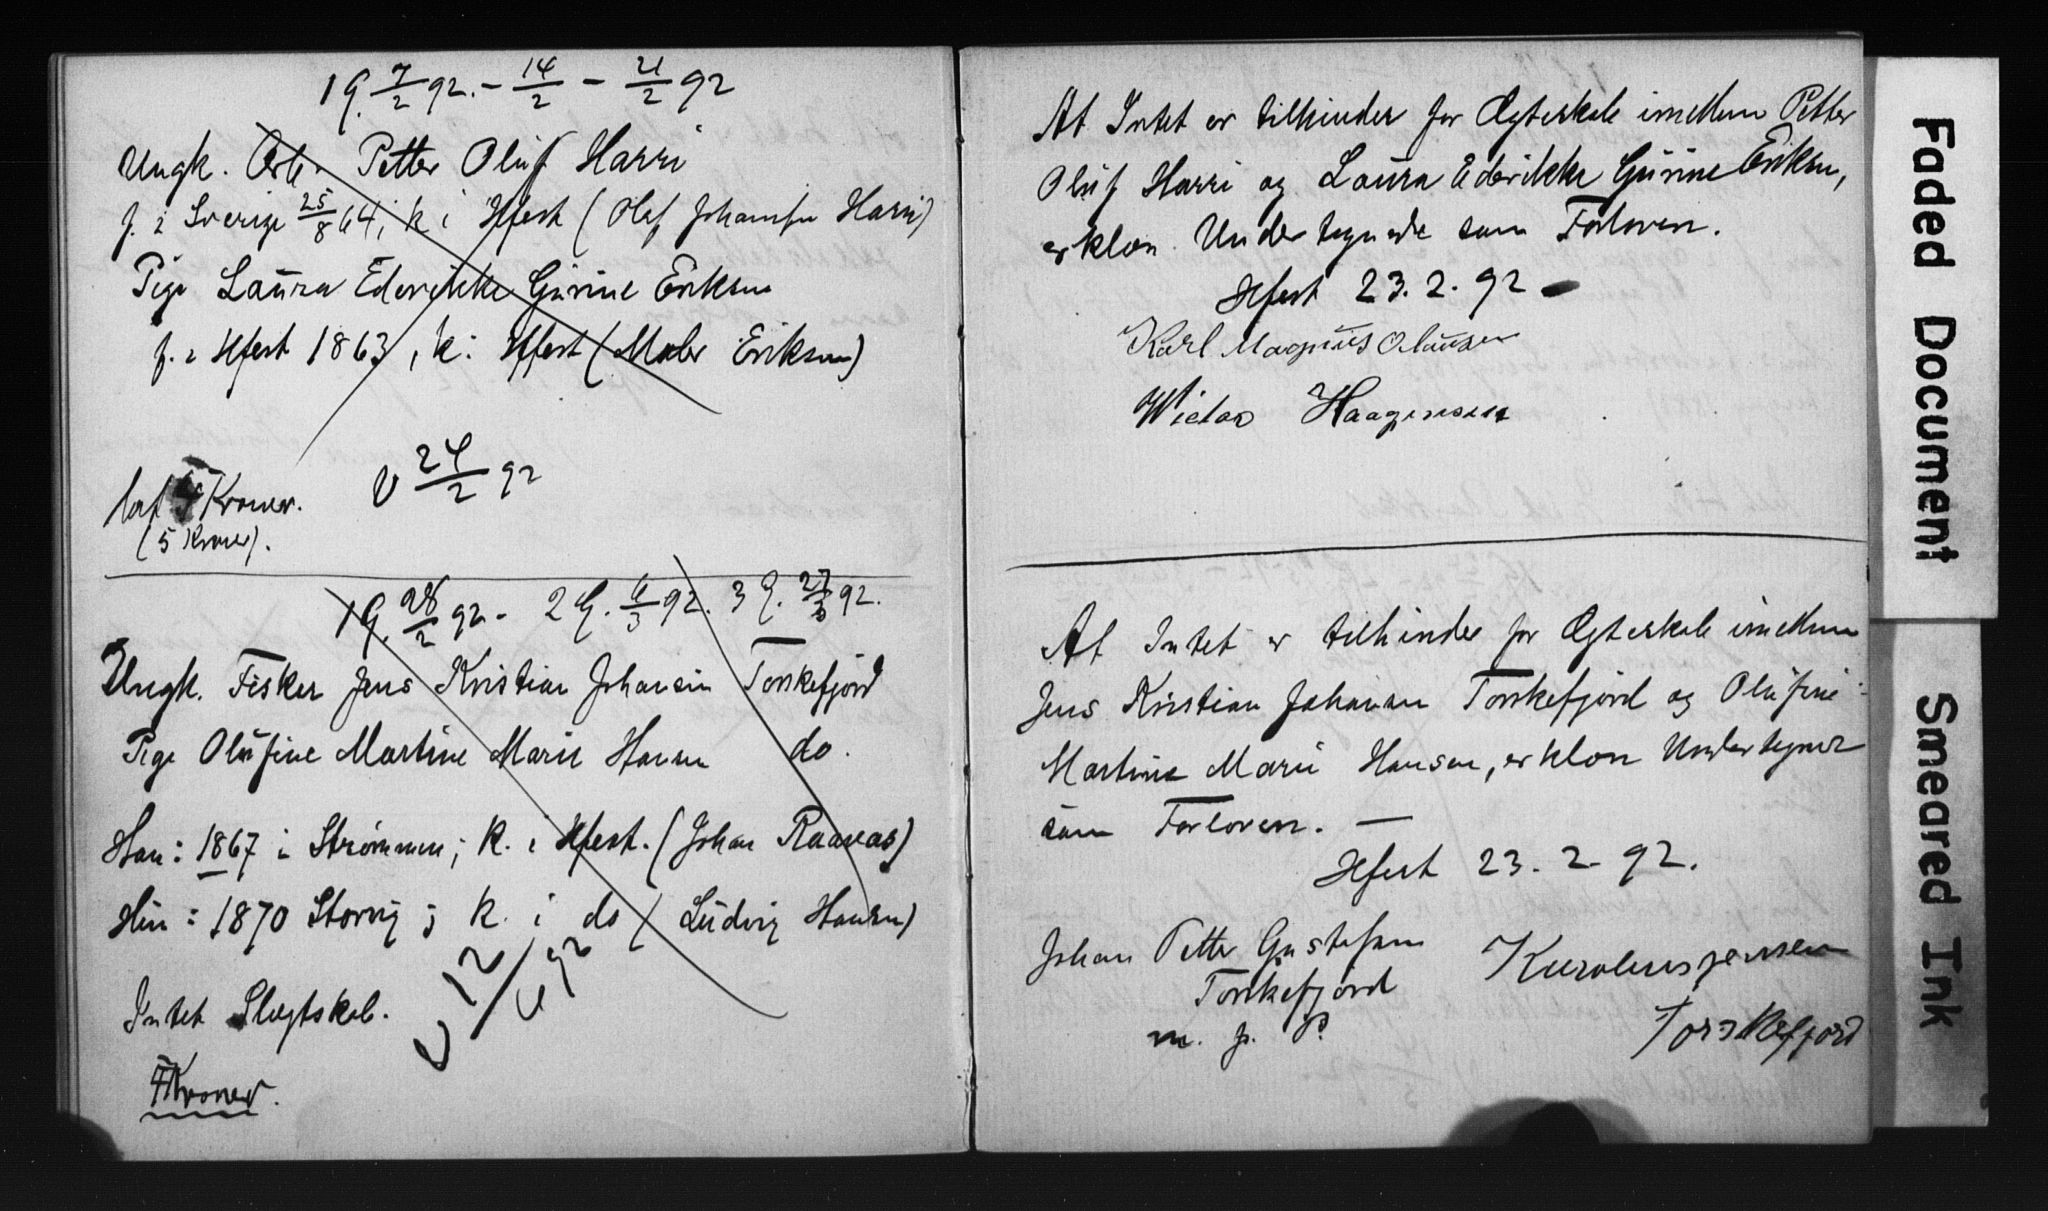 1 G. 7/2 92. - 14/2 - 21/2 92
Ungk. Arb. Petter Oluf Harri
f. i Sverige 25/8 64; k i Hfest (Olaf Johansen Harri)
Pige Laura Ederikke Gurine Eriksen
f. i Hfest 1863, k: Hfest (Maler Eriksen)
V 24/2 92
4 Kroner.
(5 Kroner).
1 G. 28/2 92 - 2 G. 6/3 92. 3 G. 27/3 92.
Ungk. Fisker Jens Kristian Johansen Torskefjord
Pige Olufine Martine Marie Hansen do.
Han: 1867 i Strømmen; k. i Hfest. (Johan Raavas)
Hun: 1870 Storvig; k. i do (Ludvig Hansen)
V 12/6 92
Intet Slægtskab.
4 Kroner.
At Intet er tilhinder for Ægteskab imellem Petter
Oluf Harri og Laura Ederikke Gurine Eriksen,
erklær. Undertegnede som Forlovere.
Hfest 23. 2. 92 -
Karl Magnus Olausen
Victor Haagensen
At Intet er tilhinder for Ægteskab imellem
Jens Kristian Johansen Torskefjord og Olufine
Martine Marie Hansen, erklær Undertegnede
som Forlovere. —
Hfest 23. 2. 92.
Johan Petter Gustafsen
Torskefjord
m. p. P.
Kurolius Jensen
Torskefjord
Faded Document
Smeared Ink